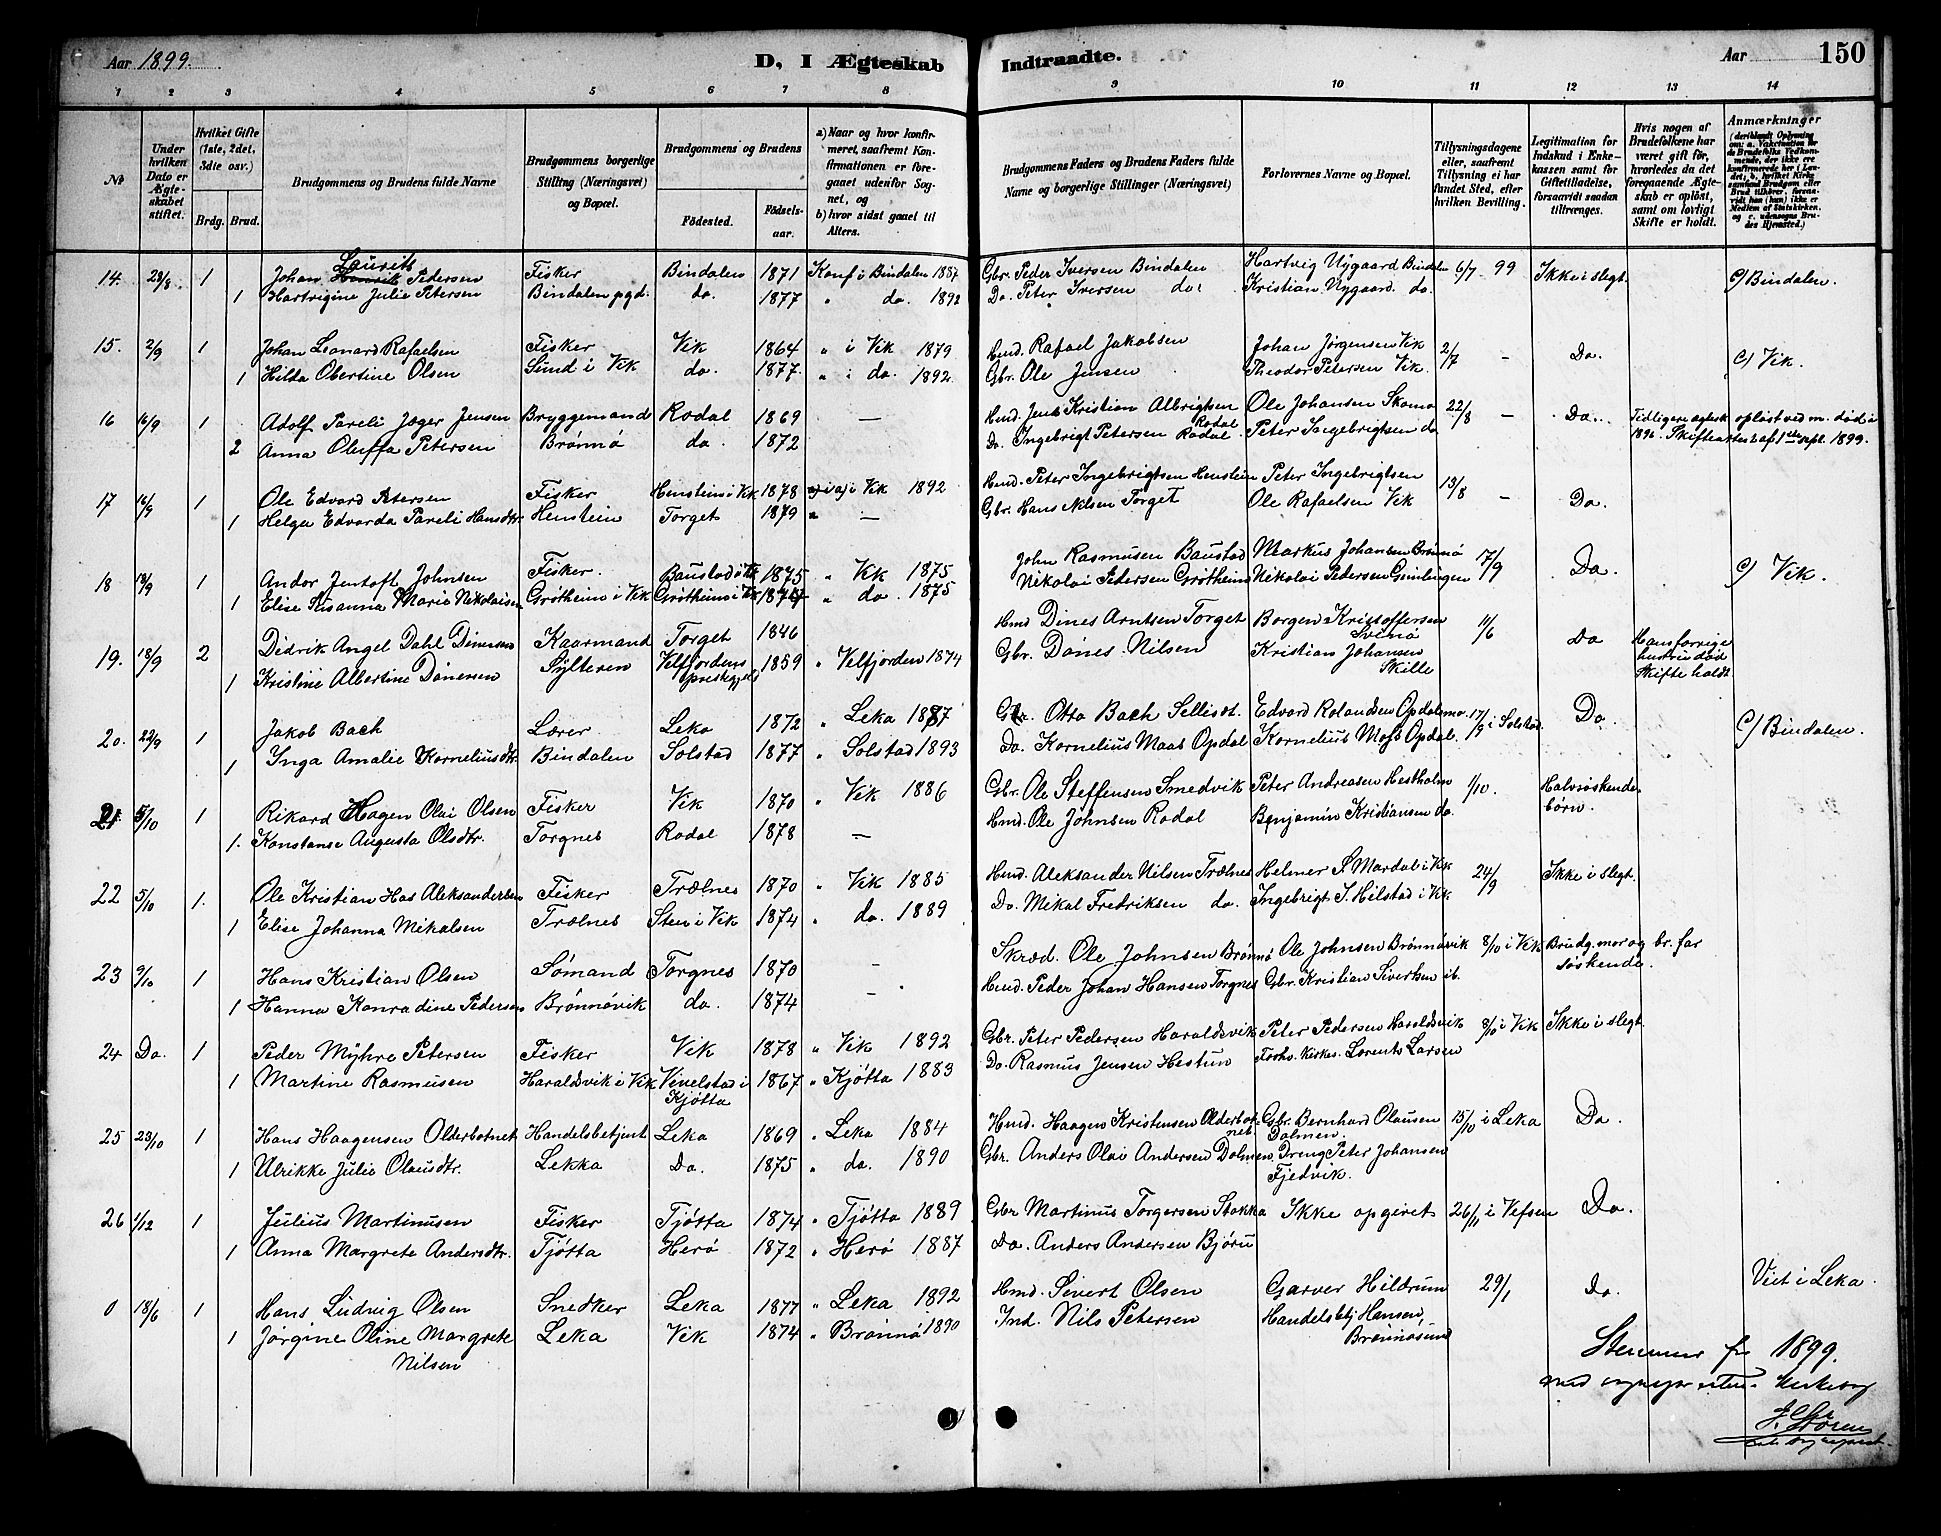 Aar 1899.
D, I Ægteskab
Indtraadte.
Aar
150
1 2 3 4 5 6 7 8 9 10 11 12 13 14
No
Under hvilken Dato er Ægteskabet stiftet.
Hvilket Gifte (1ste, 2det, 3die osv.)
Brdg. Brud.
Brudgommens og Brudens fulde Navne
Brudgommens borgerlige Stilling (Næringsvei) og Bopæl.
Brudgommens og Brudens
Fødested.
Fødselsaar.
a) Naar og hvor konfirmeret, saafremt Konfirmationen er foregaaet udenfor Sognet, og
b) hvor sidst gaaet til Alters.
Brudgommens Faders og Brudens Faders fulde Navne og borgerlige Stillinger (Næringsvei)
Forlovernes Navne og Bopæl.
Tillysningsdagene eller, saafremt Tillysning ei har fundet Sted, efter hvilken Bevilling.
Legitimation for Indskud i Enkekassen samt for Giftetilladelse, forsaavidt saadan tiltrænges.
Hvis nogen af Brudefolkene har været gift før, hvorledes da det foregaaende Ægteskab er opløst, samt om lovligt Skifte er holdt.
Anmærkninger
14. 28/8 1 Johan Laurits Pedersen Fisker Bindalen 1871 Konf i Bindalen 1887 Gbr. Peder Iversen Bindalen Hartvig Nygaard Bindalen 6/7 99 Ikke i slegt. c) Bindalen.
1 Hartvigine Julie Petersen Bindalen pgd. do. 1877 " do. 1892 Do. Peter Iversen do. Kristian Nygaard do.
15. 2/9 1 Johan Leonard Rafaelsen Fisker Vik 1864 " i Vik 1879 Hmd. Rafael Jakobsen Johan Jørgensen Vik 2/7 – Do. c) Vik.
1 Hilda Obertine Olsen Sund i Vik do. 1877. " i do. 1892. Gbr. Ole Jensen Theodor Petersen Vik.
16 16/9 1 Adolf Pareli Jæger Jensen Bryggemand Rodal 1869 – Hmd. Jens Kristian Albrigtsen Rodal Ole Johansen Skomo 22/8 – Do. Tidligere egtesk opløst ved m. død i
2 Anna Oluffa Petersen Brønnø do. 1872 Do. Ingebrigt Petersen Rodal. Peter Ingebrigtsen do 1896. Skifteattest af 1ste sept. 1899.
17 16/9 1 Ole Edvard Petersen Fisker Henstein i Vik 1878 a) i Vik 1892 Hmd. Peter Ingebrigtsen Henstein Peter Ingebrigtsen 13/8 – Do.
1 Helga Edvarda Pareli Hansdtr. Henstein Torget 1879 " – Gbr. Hans Nilsen Torget Ole Rafaelsen Vik
18 18/9 1 Andor Jentoft Johnsen Fisker. Baustad i Vik 1875 " Vik 1875 John Rasmusen Baustad Markus Johansen Brønnø 17/9 Do. c) Vik.
1 Elise Susanna Marie Nikolaisen Grøtheim i Vik Grøtheim i Vik 1874 " do. 1875 Nikolai Pedersen Grøtheim Nikolai Pedersen
19. 18/9 2 Didrik Angel Dahl Dinesen Kaarmand Torget 1846 Hmd Dines Arntsen Torget Borgen Kristoffersen Svinø 11/6 Do Hans forrige hustru død
1 Kristine Albertine Dønesen Sylteren Velfjordens prestegjeld 1859 " Velfjorden 1874 Gbr. Dønes Nilsen Kristian Johansen Skille Skifte holdt.
20. 22/9 1 Jakob Bach Lærer Leka 1872 " Leka 1887 Gbr. Otto Bach Sellisdt. Edvard Rolandsen Opdalsmo. 17/9 i Solstad. Do. c) Bindalen.
1 Inga Amalie Korneliusdtr. Bindalen Solstad 1877 " Solstad 1893 Do. Kornelius Maas Opdal Kornelius Moss Opdal.
21 5/10 1 Rikard Hagen Olai Olsen Fisker Vik 1870 " Vik 1886 Gbr. Ole Steffensen Smedvik Peter Andreasen Hestholm 1/10. Halvsøskendebørn.
1. Konstanse Augusta Olsdtr. Torgnes Rodal 1878 – Hmd. Ole Johnsen Rodal Benjamin Kristiansen do.
22 5/10 1. Ole Kristian Has Aleksandersen Fisker Trælnes 1870 " Vik 1885 Hmd. Aleksander Nilsen Trælnes Helmer S. Mardal i Vik 24/9 Ikke i slegt.
1 Elise Johanna Mikalsen Trælnes Sten i Vik 1874 " do. 1889 Do. Mikal Fredriksen do. Ingebrigt I. Hilstad i Vik.
23 9/10 1 Hans Kristian Olsen Sømand Torgnes 1870 – Skræd. Ole Johnsen Brønnø Ole Johnsen Brønnøvik 8/10 i Vik Brudg. mor og br. far søskende.
1 Hanna Konradine Pedersen Brønnøvik do. 1874 – Hmd. Peder Johan Hansen Torgnes Gbr. Kristian Sivertsen ib.
24 Do. 1 Peder Myhre Petersen Fisker Vik 1878 " Vik 1892 Gbr. Peter Pedersen Haraldsvik Peter Pedersen Haraldsvik 8/10 i Vik Ikke i slegt.
1 Martine Rasmusen Haraldsvik i Vik Vivelstad i Kjøtta 1867 " Kjøtta 1883 Do. Rasmus Jensen Hestun Forhv. Kirkes. Lorents Larsen
25 23/10 1 Hans Haagensen Olderbotnet Handelsbetjent Leka 1869 " Leka 1884 Hmd. Haagen Kristensen Olderbotnet Gbr. Bernhard Olausen Dolmen. 15/10 i Leka Do.
1 Ulrikke Julie Olausdtr. Lekka Do. 1875 " do. 1890 Gbr. Anders Olai Andersen Dolmen. Dreng Peter Johansen Fjedvik.
26 1/12 1 Julius Martinusen Fisker Tjøtta 1874 " Tjøtta 1889 Gbr Martinus Torgersen Stokka Ikke opgivet 26/11 i Vefsen Do.
1 Anna Margrete Andersdtr. Tjøtta Herø 1872 " Herø 1887 Do. Anders Andersen Bjørn
0 18/6 1 Hans Ludvig Olsen Snedker Leka 1877 " Leka 1892 Hmd. Sivert Olsen Garver Hildrum 29/1 Do. Viet i Leka.
1 Jørgine Oline Margrete Nilsen Leka Vik 1874 " Brønnø 1890 Ind. Nils Petersen Handelsbtj Hansen, Brønnøsund
Stemmer for 1899.
med